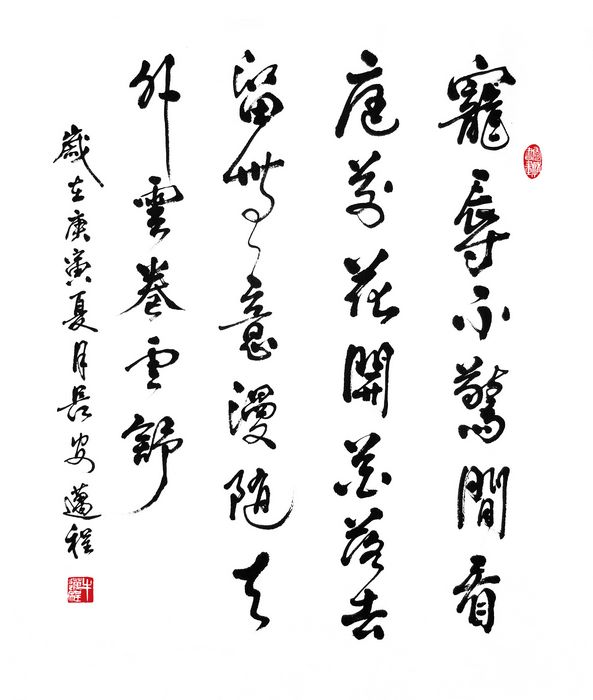 寵辱不驚閒看
庭前花開花落去
留無意漫随天
外雲卷雲舒
歲在庚寅夏月長安邁程